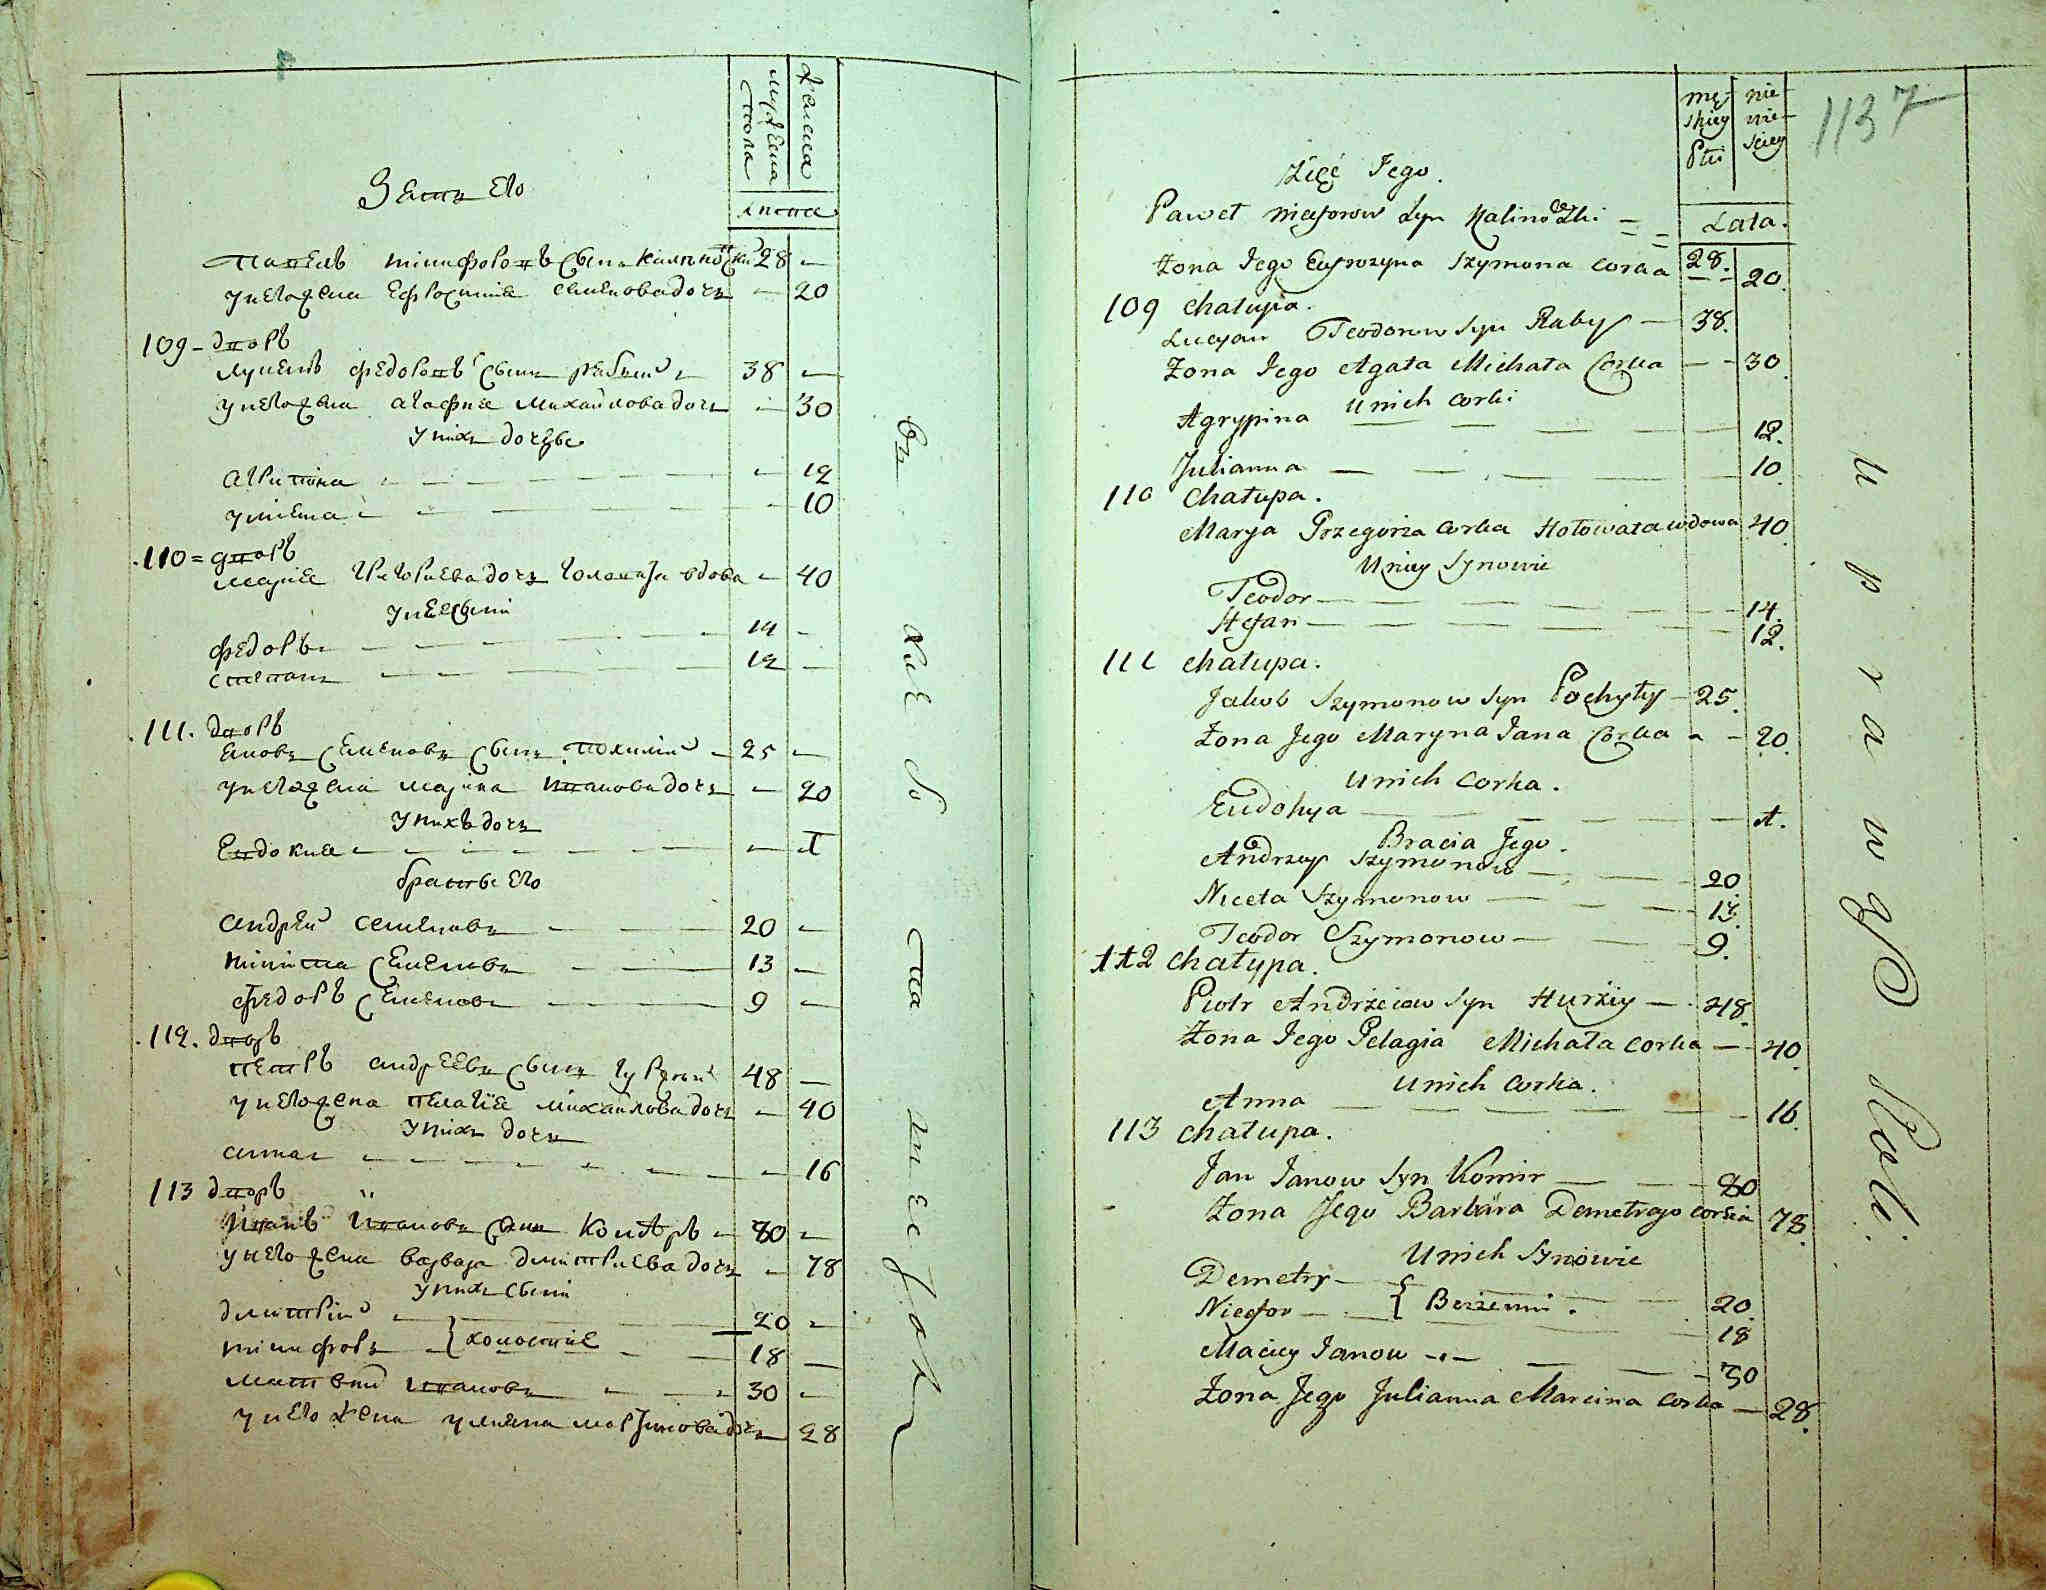 мужеска
пола
женска
лета
Зять его
Павелъ Никифоровъ сынъ Калиновский 28 —
У него жена Ефросиния Семенова дочь — 20
109 — дворъ
Лукянъ Федоровъ сынъ Рабый 38 —
У него жена Агафия Михайлова дочь — 30
У них дочери
Агрипина — 12
Улияна — 10
110 = дворъ
Мария Григориева дочь Головата вдова — 40
У нее сыни
Федоръ — 14 —
Степанъ — 12 —
111. дворъ
Яковъ Семеновъ сынъ Похилий — 25 —
У него жена Марина Иванова дочь — 20
У нихъ дочь
Евдокия — 1
Братья его
Андрей Семеновъ — 20 —
Никита Семеновъ — 13 —
Федоръ Семеновъ — 9 —
112. дворъ
Петръ Андреевъ сынъ Гуржий 48 —
У него жена Пелагия Михайлова дочь — 40
У нихъ дочь
Анна — 16
113 дворъ
Иванъ Ивановъ сынъ Комѣръ — 80 —
У него жена Варвара Димитриева дочь — 78
У нихъ сыни
Димитрий — 20 —
Никифоръ } холостие — 18 —
Матвей Ивановъ — 30 —
У него жена Улияна Мартинова дочь — 28
Въ хлебопашестве
1137
męskiey Płci
niewieściey
Lata.
Zięć Jego.
Paweł Nicyforow Syn Kalinowski = =
Żona Jego Eufrozyna Szymona corka 28. 20.
109 Chałupa.
Lucyan Teodorow Syn Rabyi — 38.
Żona Jego Agata Michała Corka — — 30.
Unich corki
Agrypina — 12.
Julianna — 10.
110 Chałupa.
Marya Grzegorza corka Hołowata wdowa 40.
Uniey Synowie
Teodor — 14.
Stefan — 12.
111 Chałupa.
Jakob Szymonow Syn Pochyłyi — 25.
Żona Jego Maryna Jana Corka — 20.
Unich corka.
Eudokya — 1.
Bracia Jego.
Andrzey Szymonow — 20.
Niceta Szymonow — 13.
Teodor Szymonow — 9.
112 Chałupa.
Piotr Andrzeiow Syn Hurżiy — 48.
Żona Jego Pelagia Michała corka — 40.
Unich corka.
Anna — 16.
113 Chałupa.
Jan Janow Syn Komir — 80
Żona Jego Barbara Demetrego corka 78.
Unich Synowie
Demetry — 20.
Nicefor — { Bezżenni. 18
Maciey Janow — 30
Żona Jego Julianna Marcina corka — 28.
Uprawą Roli.